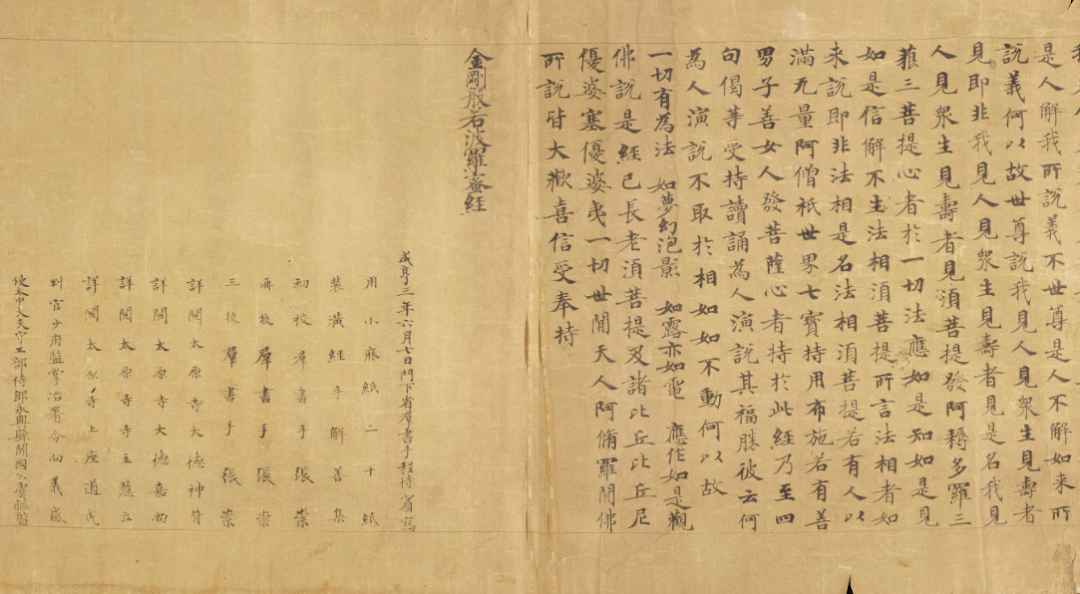 是人解我所說義不世尊是人不解如来所
說義何以故世尊說我見人見衆生見壽者
見即非我見人見衆生見壽者見是名我見
人見衆生見壽者見湏菩提發阿耨多羅三
藐三菩提心者於一切法應如是知如是見
如是信解不生法相湏菩提所言法相者如
来說即非法相是名法相湏菩提若有人以
滿无量阿僧祇世界七寶持用布施若有善
男子善女人發菩薩心者持於此經乃至四
句偈等受持讀誦為人演說其福勝彼云何
為人演說不取於相如如不動何以故
一切有為法 如夢幻泡影 如露亦如電 應作如是觀
佛說是經已長老湏菩提及諸比丘比丘尼
優婆塞優婆夷一切世間天人阿脩羅聞佛
所說皆大歡喜信受奉持
金剛般若波羅蜜經
咸亨三年六月七日門下省羣書手程待賓寫
用小麻紙二十紙
裝潢經手解善集
初校羣書手張崇
再校羣書手張崇
三校羣書手張崇
詳閱太原寺大德神苻
詳閱太原寺大德嘉尚
詳閱太原寺寺主慧立
詳閱太原寺上座道成
判官少府監掌冶署令向義感
使太中大夫守工部侍郎永興縣開國公虞昶監